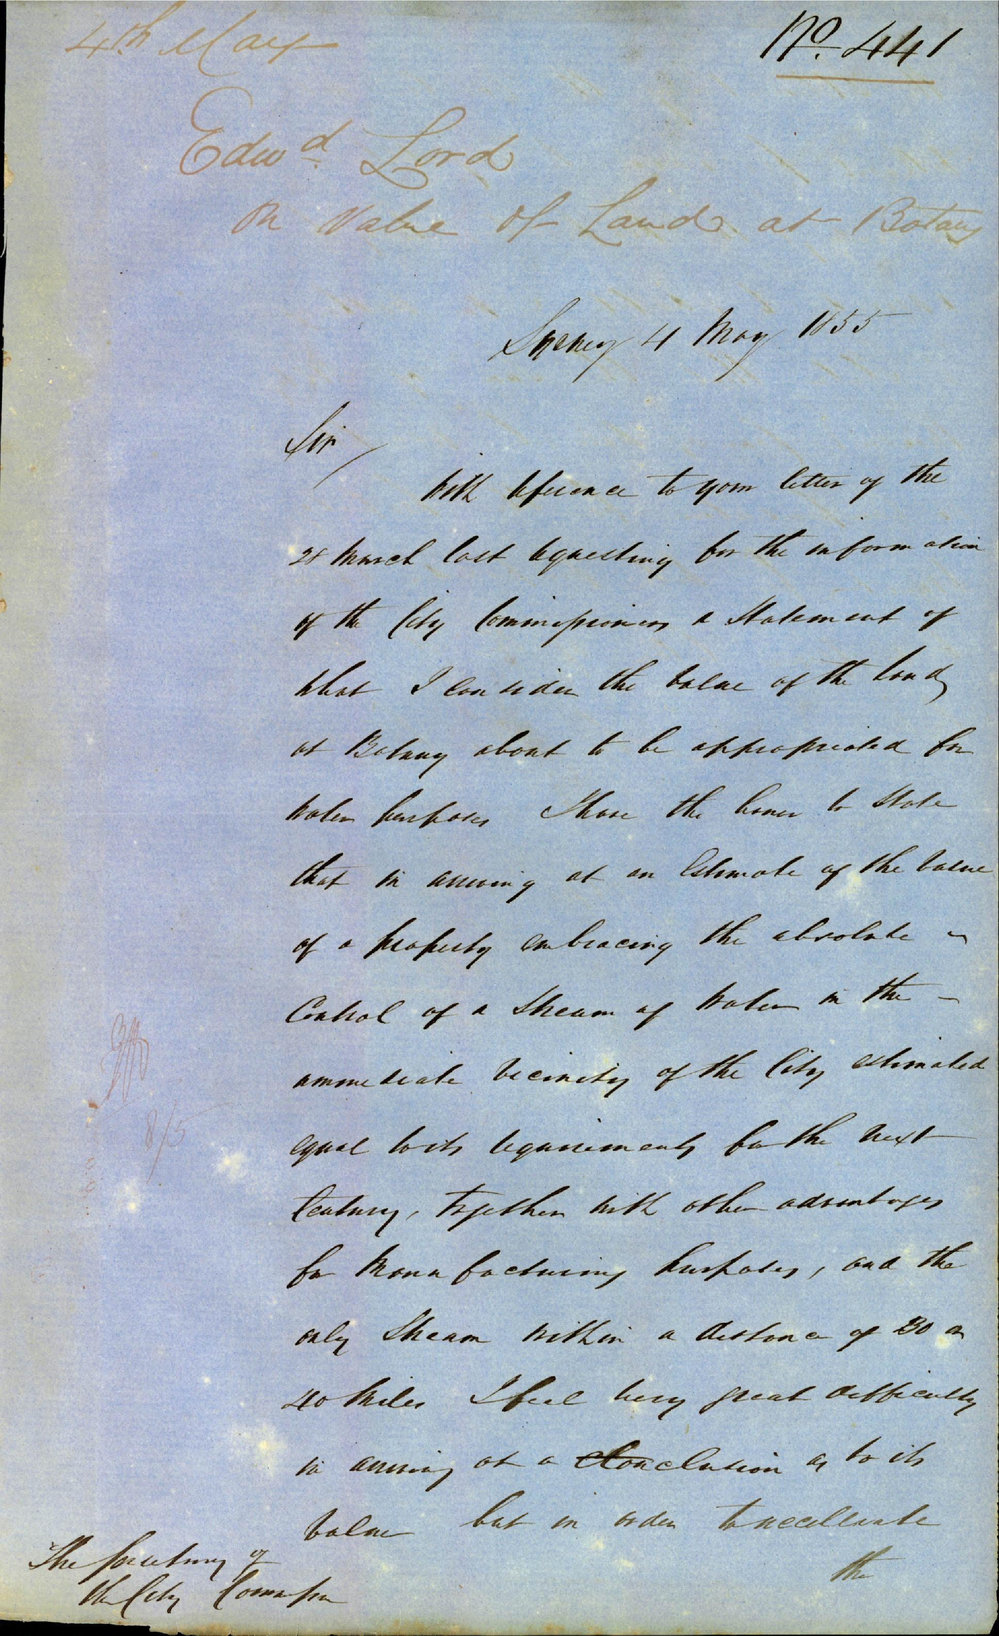 4th May
No. 441
Edwd. Lord
on Value of Land at Botany
Sydney 4 May 1855
Sir/
With reference to your letter of the
28 March last requesting for the information
of the City Commissioners a Statement of
what I consider the value of the land
at Botany about to be appropriated for
water purposes I have the honor to state
that in arriving at an Estimate of the value
of a property embracing the absolute
Control of a Stream of water in the
immediate vicinity of the City estimated
equal to its requirements for the next
Century, together with other advantages
for Manufacturing purposes, and the
only Stream within a distance of 30 or
40 Miles I feel very great difficulty
in arriving at a Conclusion as to its
value but in order to accellerate
the
8/5
The Secretary of
the City Commissn